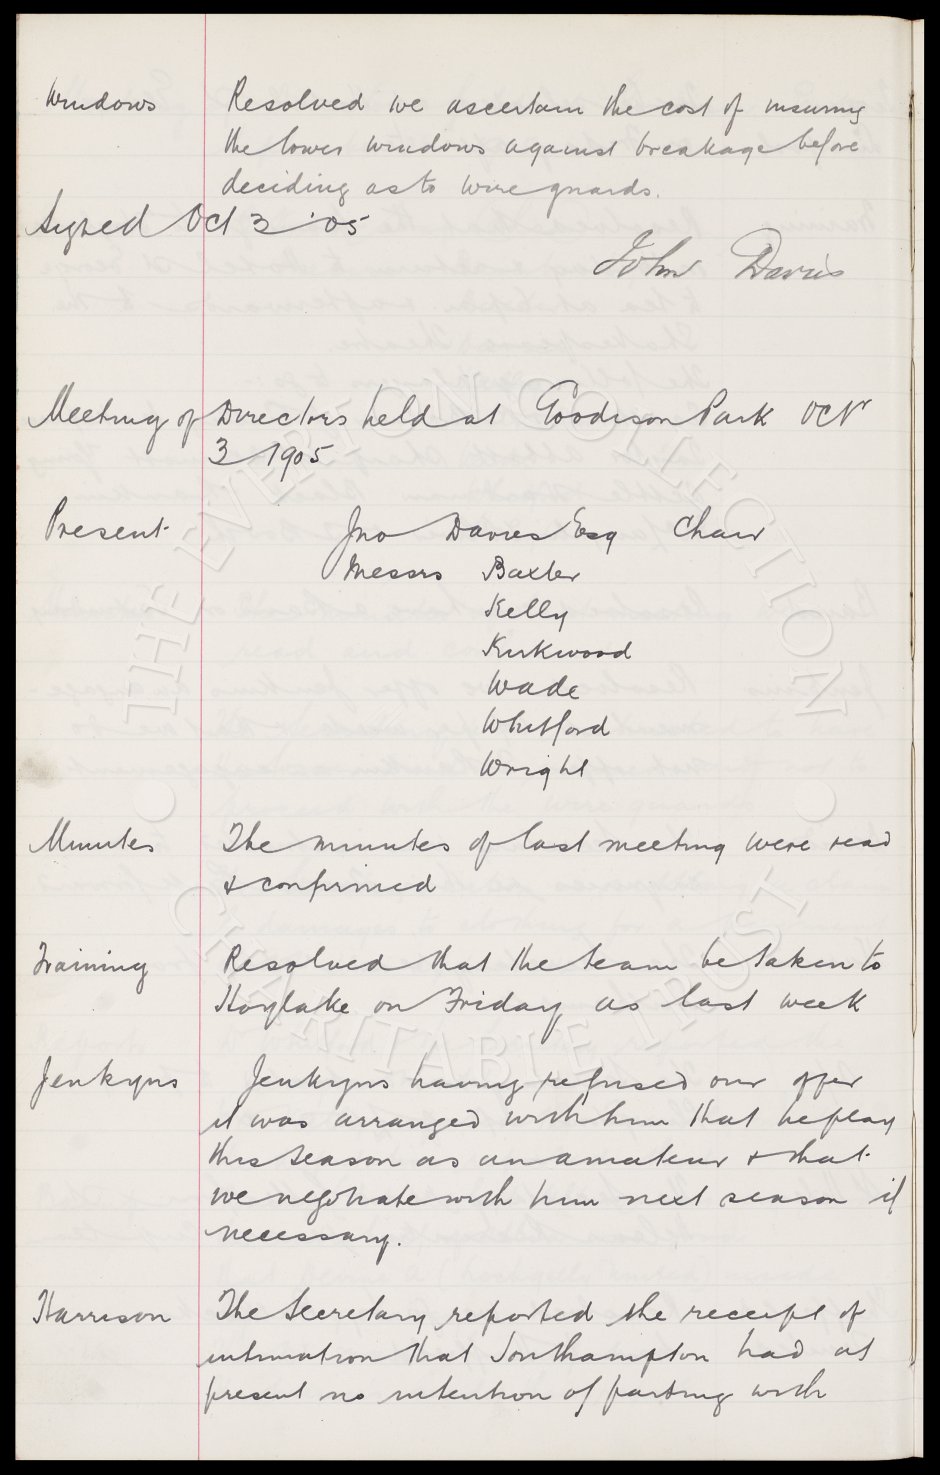 Windows Resolved we ascertain the cost of insuring
the lower windows against breakage before
deciding as to wire guards.
Signed Oct 3 '05
John Davies
Meeting of Directors held at Goodison Park Octr
3 1905
Present Jno Davies Esq Chair
Messrs Baxter
Kelly
Kirkwood
Wade
Whitford
Wright
Minutes The minutes of last meeting were read
& confirmed
Training Resolved that the team be taken to
Hoylake on Friday as last week
Jenkyns Jenkyns having refused our offer
it was arranged with him that he play
this season as an amateur & that
we negotiate with him next season if
necessary.
Harrison The Secretary reported the receipt of
intimation that Southampton had at
present no intention of parting with
THE EVERTON COLLECTION
CHARITABLE TRUST